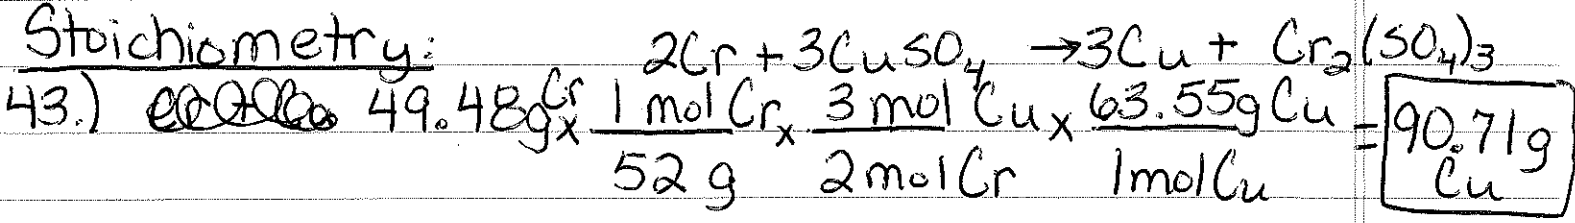 Stoichiometry: 2Cr + 3CuSO₄ → 3Cu + Cr₂(SO₄)₃
43.) 49.48g Cr x 1 mol Cr / 52 g x 3 mol Cu / 2 mol Cr x 63.55g Cu / 1 mol Cu = 90.71g Cu